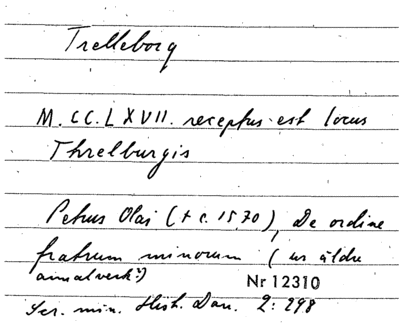 Trelleborg
M.CC.LXVII. receptus est locus
Threlburgis
Petrus Olai († c. 1570), De ordine
fratrum minorum (ur äldre
annalverk?)
Nr 12310
Scr. min. Hist. Dan. 2:298